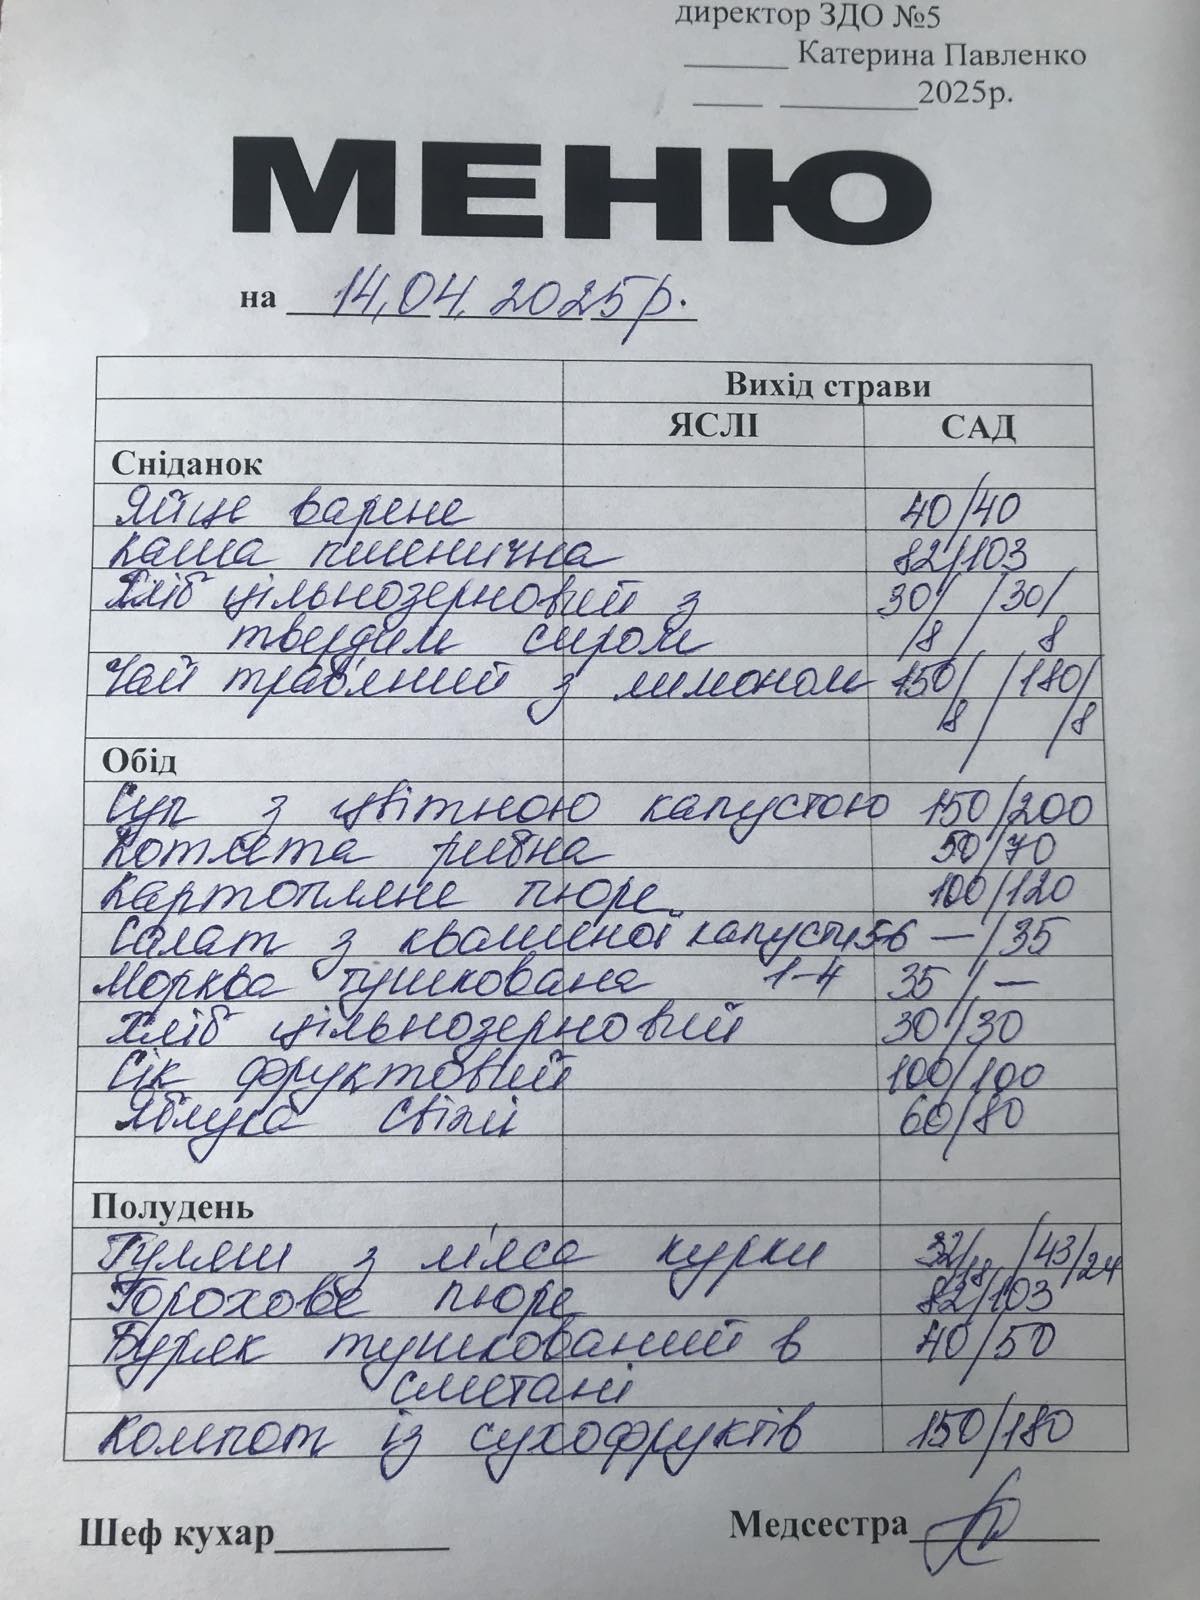 директор ЗДО №5
______ Катерина Павленко
____ ________2025р.
МЕНЮ
на 14.04.2025р.
Вихід страви
ЯСЛІ САД
Сніданок
Яйце варене 40/40
Каша пшенична 82/103
Хліб цільнозерновий з 30/ /30/
твердим сиром /8 8
Чай трав'яний з лимоном 150/ /180/
/8 /8
Обід
Суп з цвітною капустою 150/200
Котлета рибна 50/70
Картопляне пюре 100/120
Салат з квашеної капусти 5-6 — /35
Морква тушкована 1-4 35/—
Хліб цільнозерновий 30/30
Сік фруктовий 100/100
Яблука свіжі 60/80
Полудень
Гуляш з м'яса курки 32/18 /43/24
Горохове пюре 82/103
Буряк тушкований в 40/50
сметані
Компот із сухофруктів 150/180
Шеф кухар__________ Медсестра__________